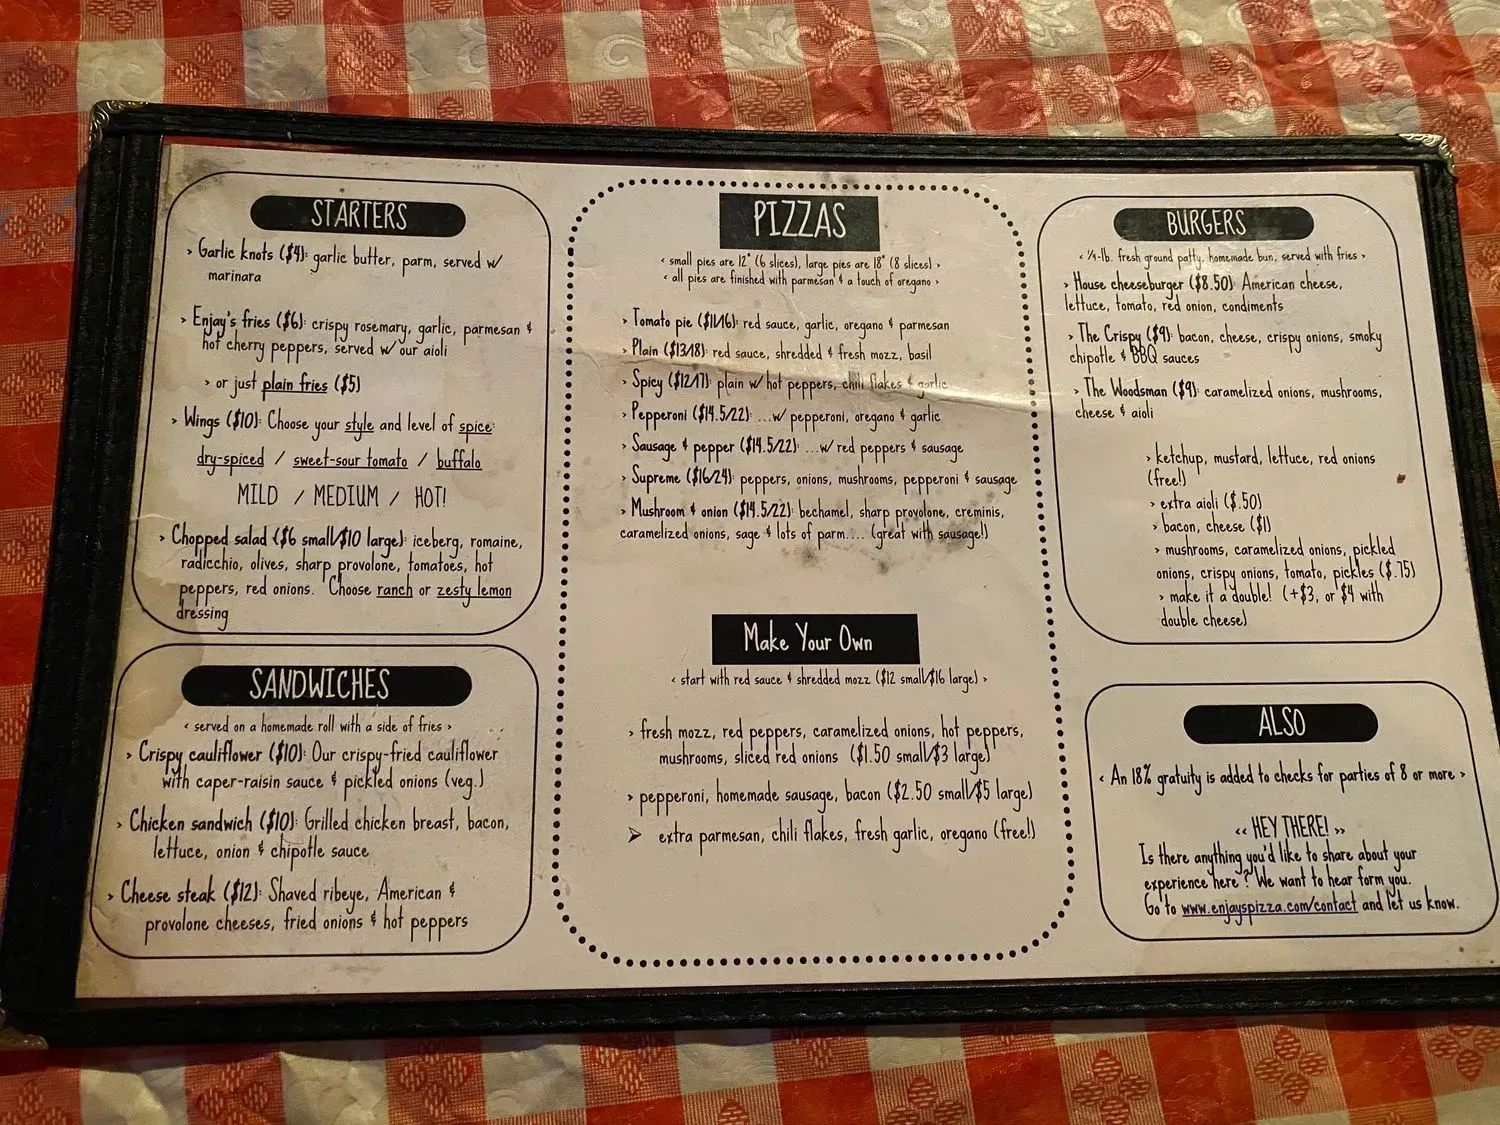 STARTERS
> Garlic knots ($4): garlic butter, parm, served w/
marinara
> Enjay's fries ($6): crispy rosemary, garlic, parmesan &
hot cherry peppers, served w/ our aioli
> or just plain fries ($5)
> Wings ($10): Choose your style and level of spice:
dry-spiced / sweet-sour tomato / buffalo
MILD / MEDIUM / HOT!
> Chopped salad ($6 small/$10 large): iceberg, romaine,
radicchio, olives, sharp provolone, tomatoes, hot
peppers, red onions. Choose ranch or zesty lemon
dressing
SANDWICHES
< served on a homemade roll with a side of fries >
> Crispy cauliflower ($10): Our crispy-fried cauliflower
with caper-raisin sauce & pickled onions (veg.)
> Chicken sandwich ($10): Grilled chicken breast, bacon,
lettuce, onion & chipotle sauce
> Cheese steak ($12): Shaved ribeye, American &
provolone cheeses, fried onions & hot peppers
PIZZAS
< small pies are 12" (6 slices), large pies are 18" (8 slices) >
< all pies are finished with parmesan & a touch of oregano >
> Tomato pie ($11/16): red sauce, garlic, oregano & parmesan
> Plain ($13/18): red sauce, shredded & fresh mozz, basil
> Spicy ($12/17): plain w/ hot peppers, chili flakes & garlic
> Pepperoni ($14.5/22): ...w/ pepperoni, oregano & garlic
> Sausage & pepper ($14.5/22): ...w/ red peppers & sausage
> Supreme ($16/24): peppers, onions, mushrooms, pepperoni & sausage
> Mushroom & onion ($14.5/22): bechamel, sharp provolone, creminis,
caramelized onions, sage & lots of parm.... (great with sausage!)
Make Your Own
< start with red sauce & shredded mozz ($12 small/$16 large) >
> fresh mozz, red peppers, caramelized onions, hot peppers,
mushrooms, sliced red onions ($1.50 small/$3 large)
> pepperoni, homemade sausage, bacon ($2.50 small/$5 large)
➢ extra parmesan, chili flakes, fresh garlic, oregano (free!)
BURGERS
< ¼-lb. fresh ground patty, homemade bun, served with fries >
> House cheeseburger ($8.50): American cheese,
lettuce, tomato, red onion, condiments
> The Crispy ($9): bacon, cheese, crispy onions, smoky
chipotle & BBQ sauces
> The Woodsman ($9): caramelized onions, mushrooms,
cheese & aioli
> ketchup, mustard, lettuce, red onions
(free!)
> extra aioli ($.50)
> bacon, cheese ($1)
> mushrooms, caramelized onions, pickled
onions, crispy onions, tomato, pickles ($.75)
> make it a double! (+$3, or $4 with
double cheese)
ALSO
< An 18% gratuity is added to checks for parties of 8 or more >
<< HEY THERE! >>
Is there anything you'd like to share about your
experience here? We want to hear form you.
Go to www.enjayspizza.com/contact and let us know.